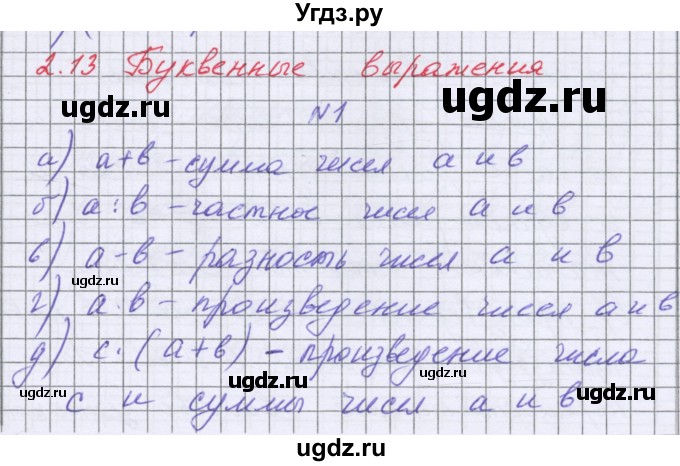 Угдз.ру
2.13 Буквенные выражения
ugdz.ru
ugdz.ru
№1
а) a+b - сумма чисел a и b
ugdz.ru
б) a:b - частное чисел a и b
в) a-b - разность чисел a и b
ugdz.ru
ugdz.ru
г) a·b - произведение чисел a и b
д) c·(a+b) - произведение числа
ugdz.ru
ugdz.ru
ugdz.ru
c и суммы чисел a и b
ugdz.ru